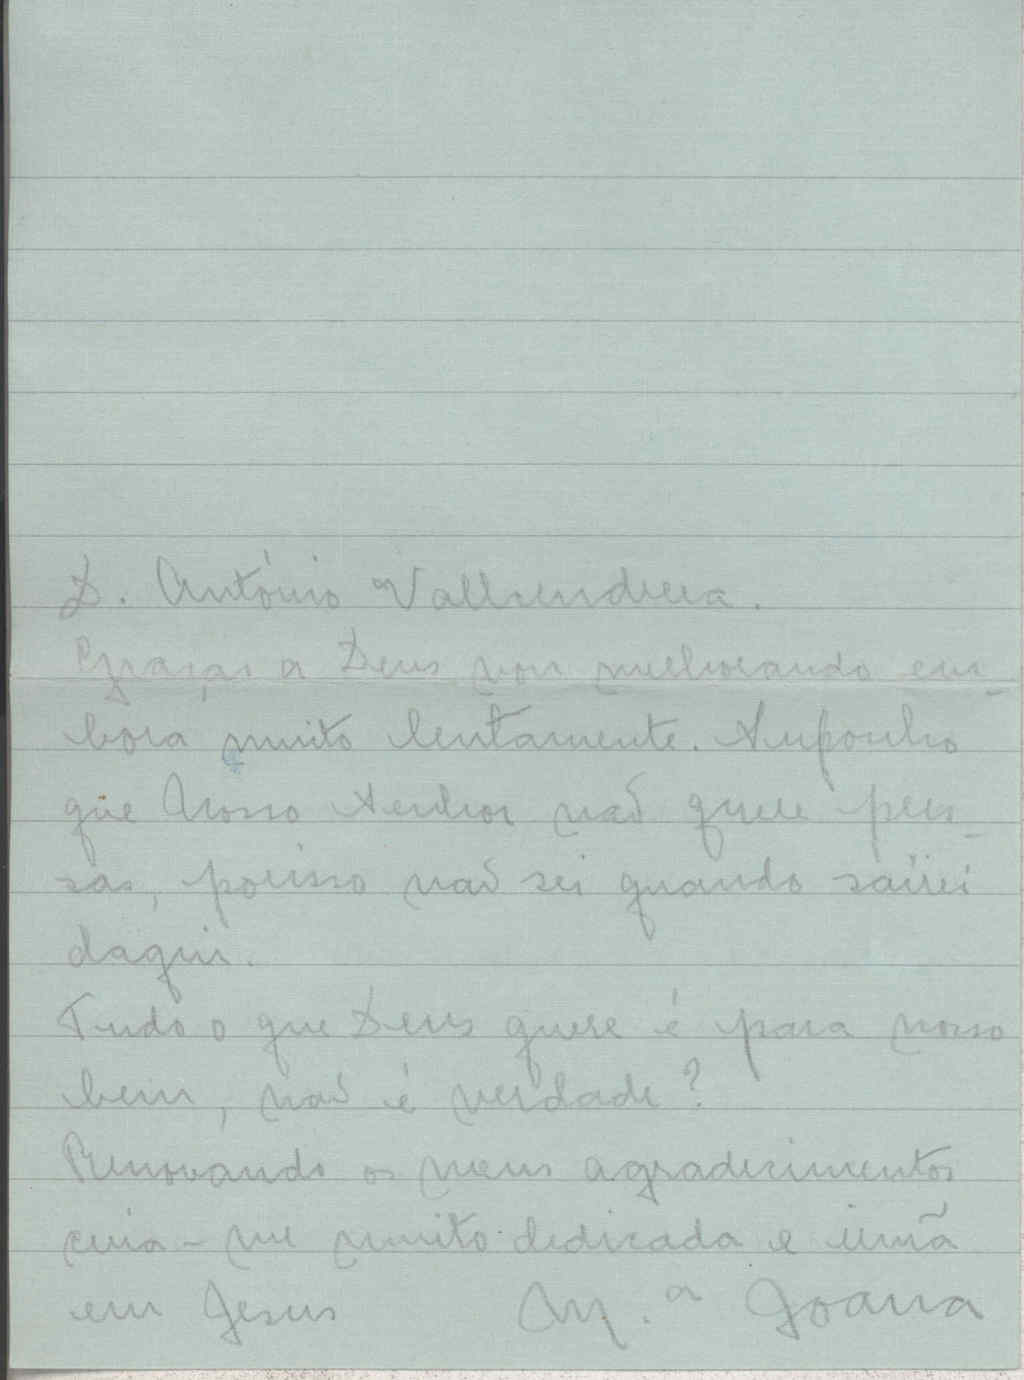 D. António Valhundreia.
Graças a Deus vou melhorando em-
bora muito lentamente. Suponho
que Nosso Senhor não quere pres-
sas, porisso não sei quando saírei
daqui.
Tudo o que Deus quere é para nosso
bem, não é verdade?
Renovando os meus agradecimentos
creia-me muito dedicada e irmã
em Jesus M.ª Joana